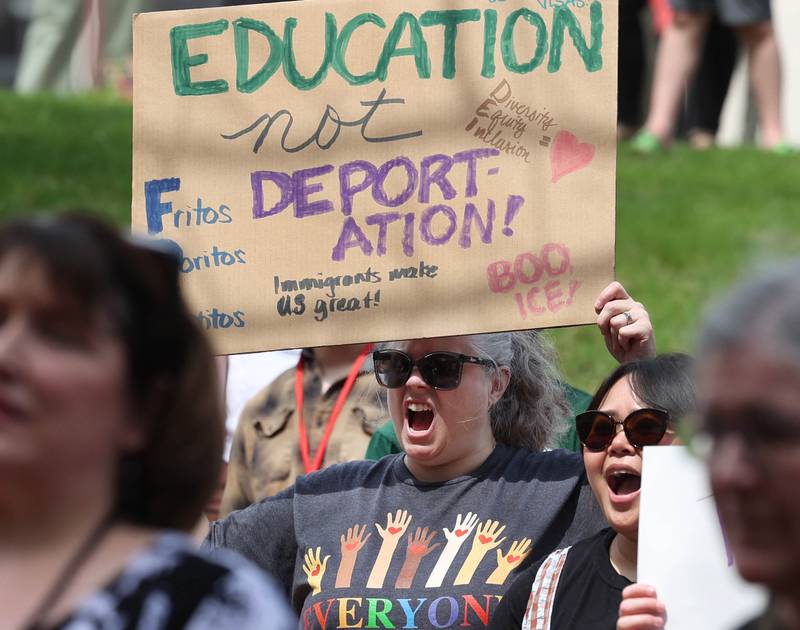 VISAS!
EDUCATION
not
Diversity
Equity =
Inclusion
DEPORT-
ATION!
Fritos
Doritos
Immigrants make
US great!
BOO
ICE!
EVERYON